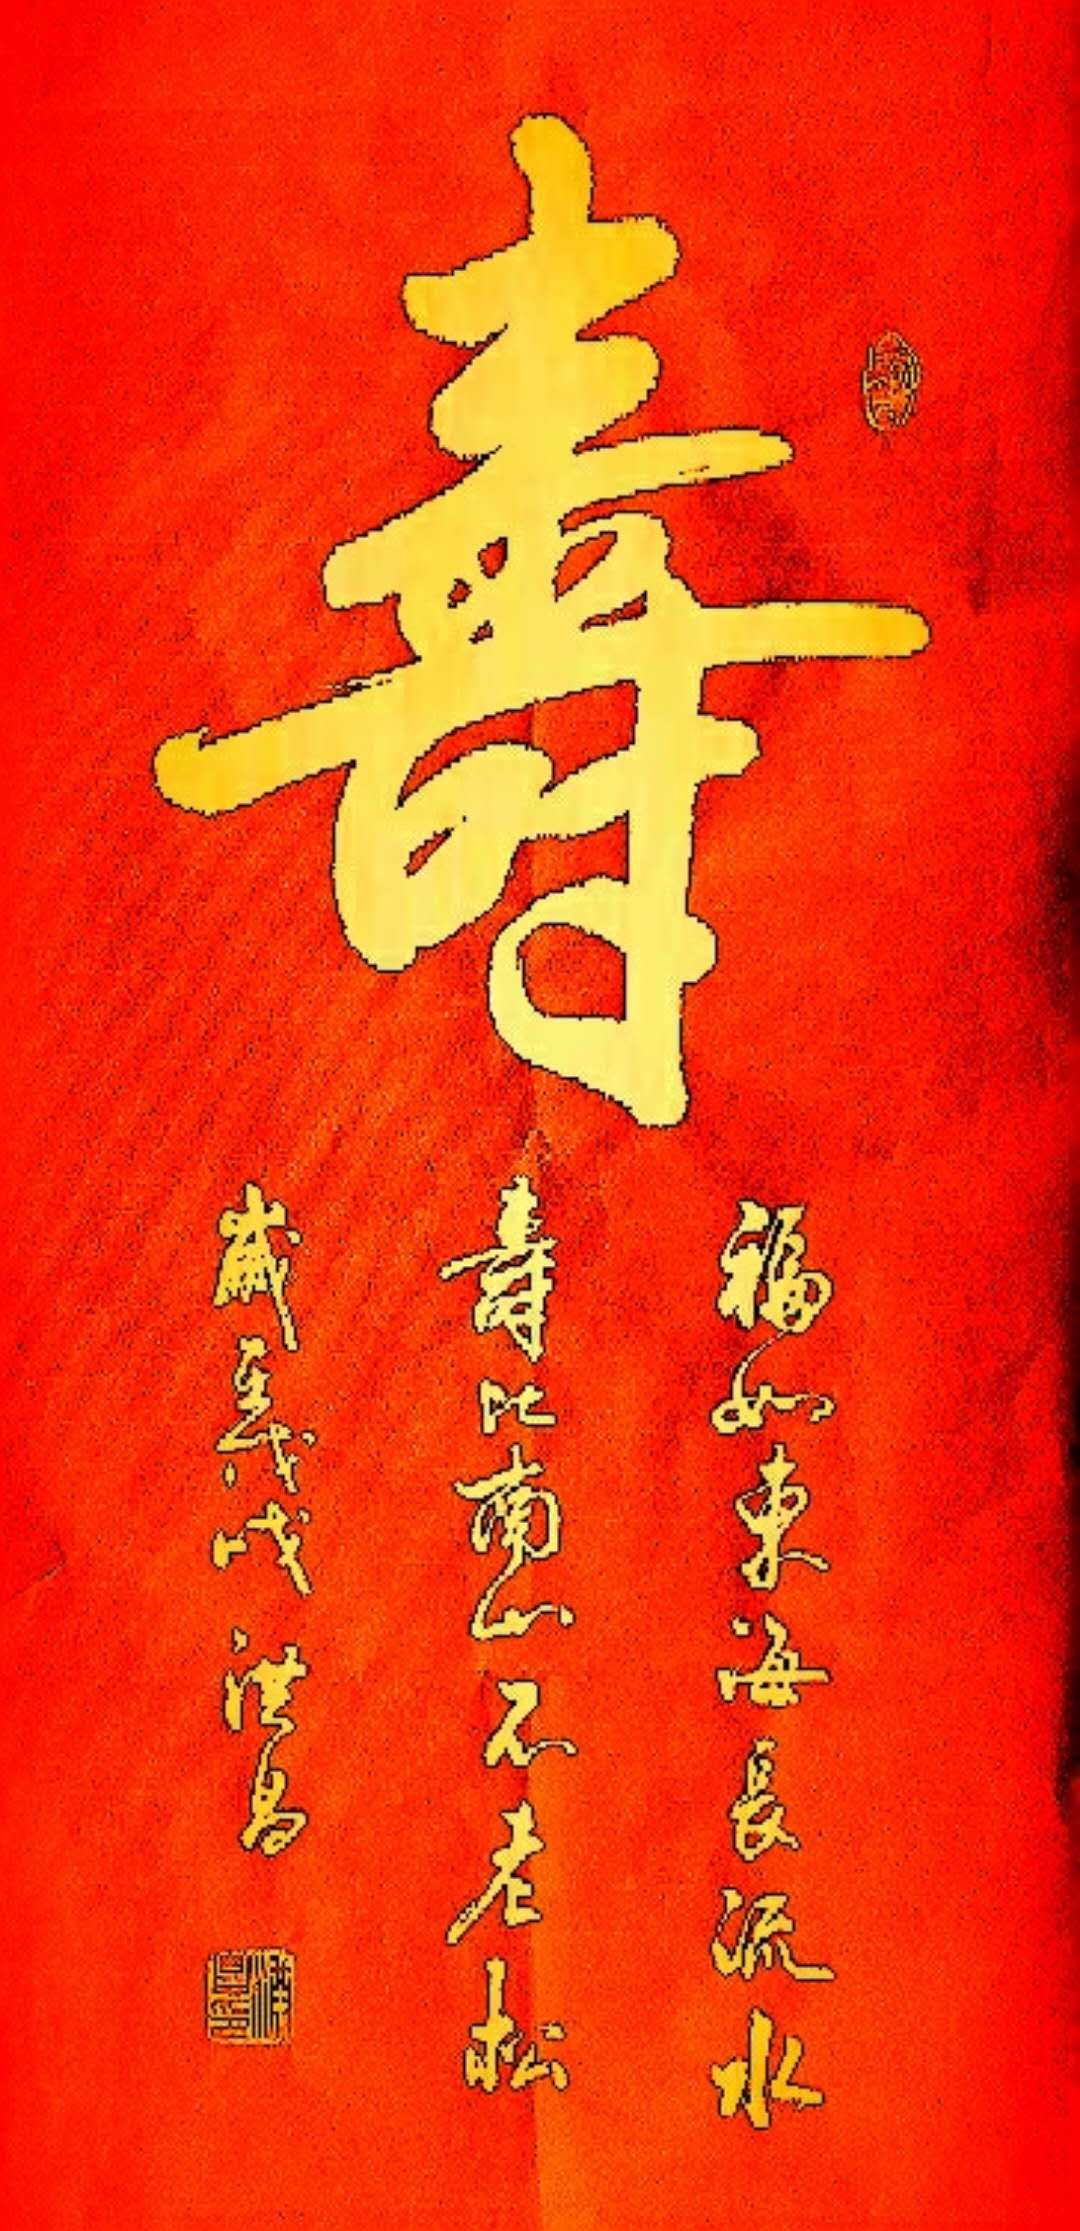 壽
福如東海長流水
壽比南山不老松
歲在戊戌 洪昌